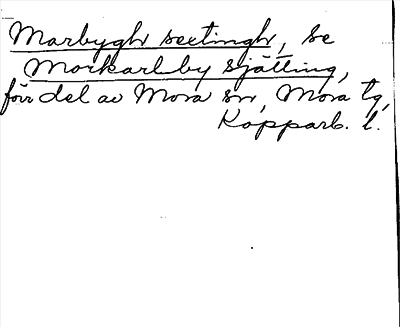 Marbyghr sextinghr, se
Morkarlby sjätting,
förr del av Mora sn, Mora tg,
Kopparb. l.